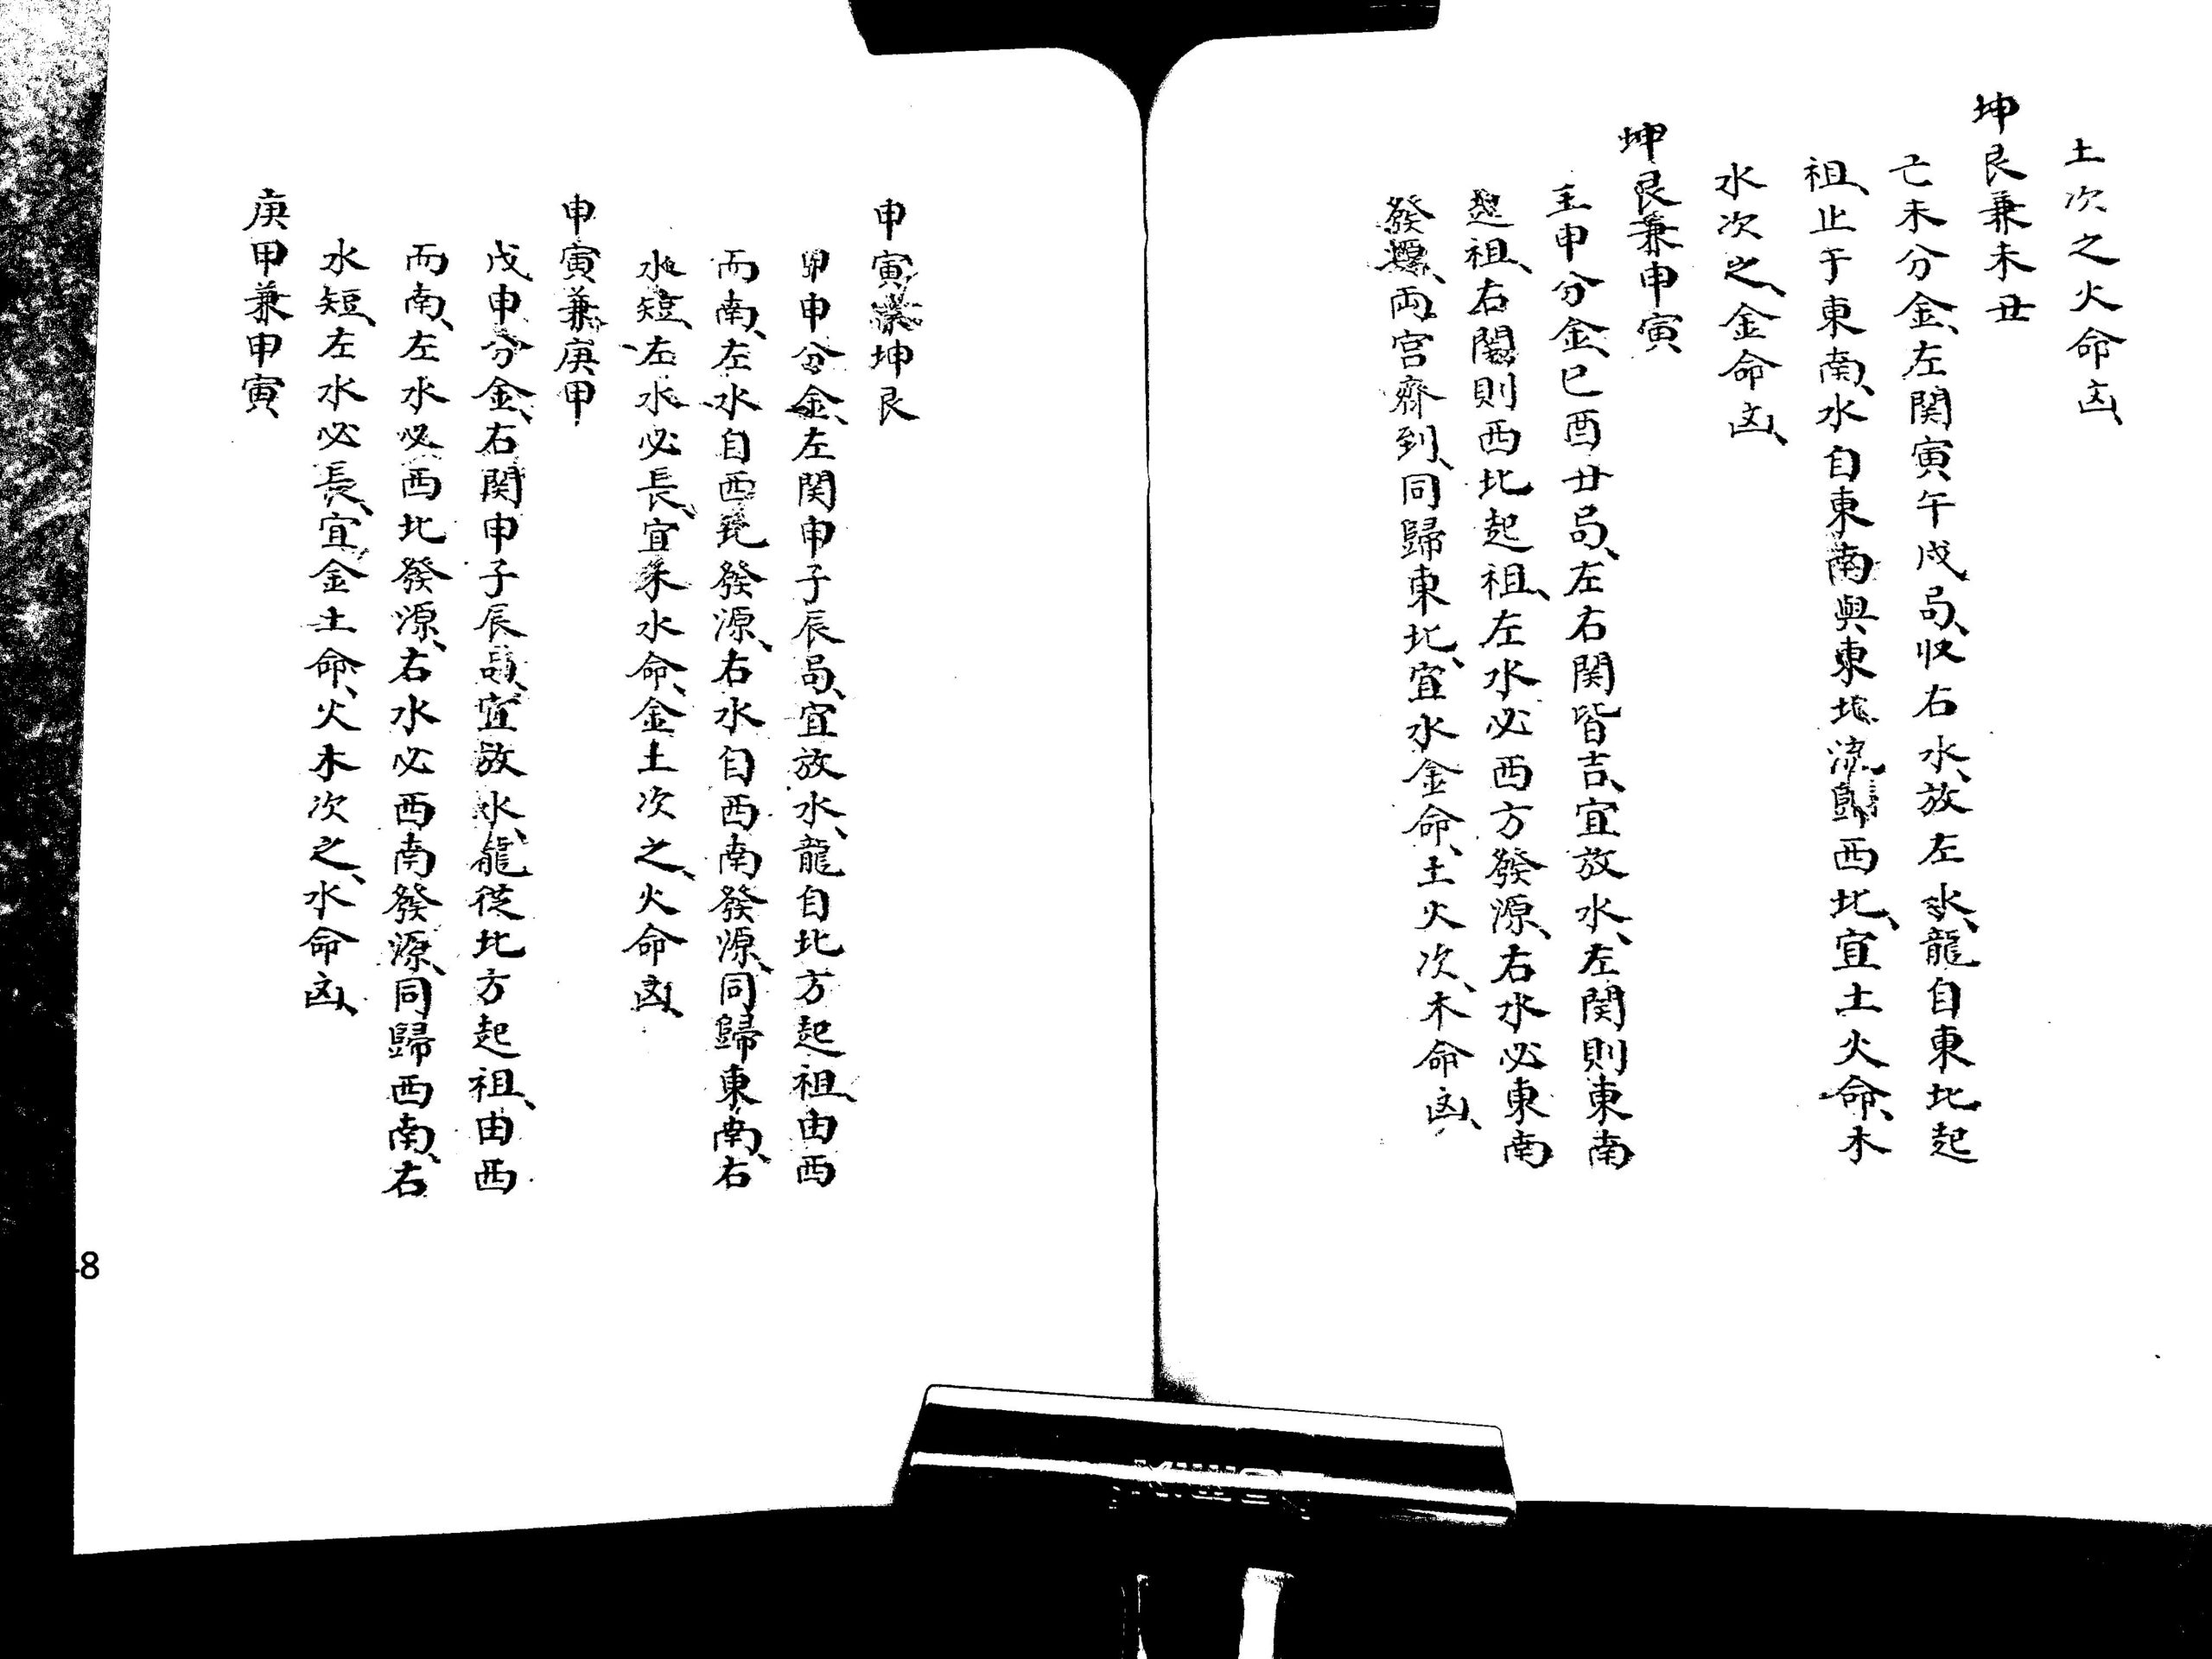 土次之火命凶、
坤艮兼未丑
己未分金、左関寅午戌局、収右水、放左水、龍自東北起
祖、止于東南、水自東南與東北流歸西北、宜土火命、木
水次之、金命凶、
坤艮兼申寅
壬申分金、巳酉丑局、左右関皆吉、宜放水、左関則東南
起祖、右関則西北起祖、左水必西方發源、右水必東南
發源、両宮齊到、同歸東北、宜水金命、土火次、木命凶、
申寅兼坤艮
甲申分金、左関申子辰局、宜放水、龍自北方起祖、由西
而南、左水自西北發源、右水自西南發源、同歸東南、右
水短、左水必長、宜木水命、金土次之、火命凶、
申寅兼庚甲
戊申分金、右関申子辰局、宜放水、龍從北方起祖、由西
而南、左水必西北發源、右水必西南發源、同歸西南、右
水短、左水必長、宜金土命、火木次之、水命凶、
庚甲兼申寅
8